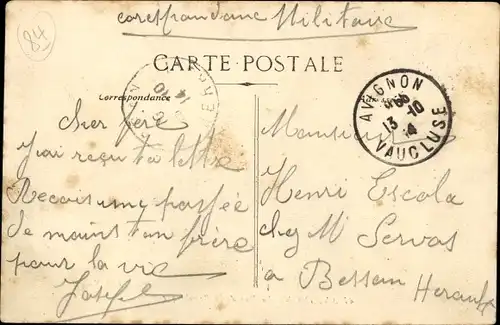 84
correspondance Militaire
CARTE POSTALE
Correspondance
AVIGNON
13-10
14
VAUCLUSE
14 10
Cher père
J'ai reçu ta lettre
Recois une
de
ton frère
pour la vie
Joseph
Monsieur
Henri Escola
chez Mr Servas
a Bessan Herault